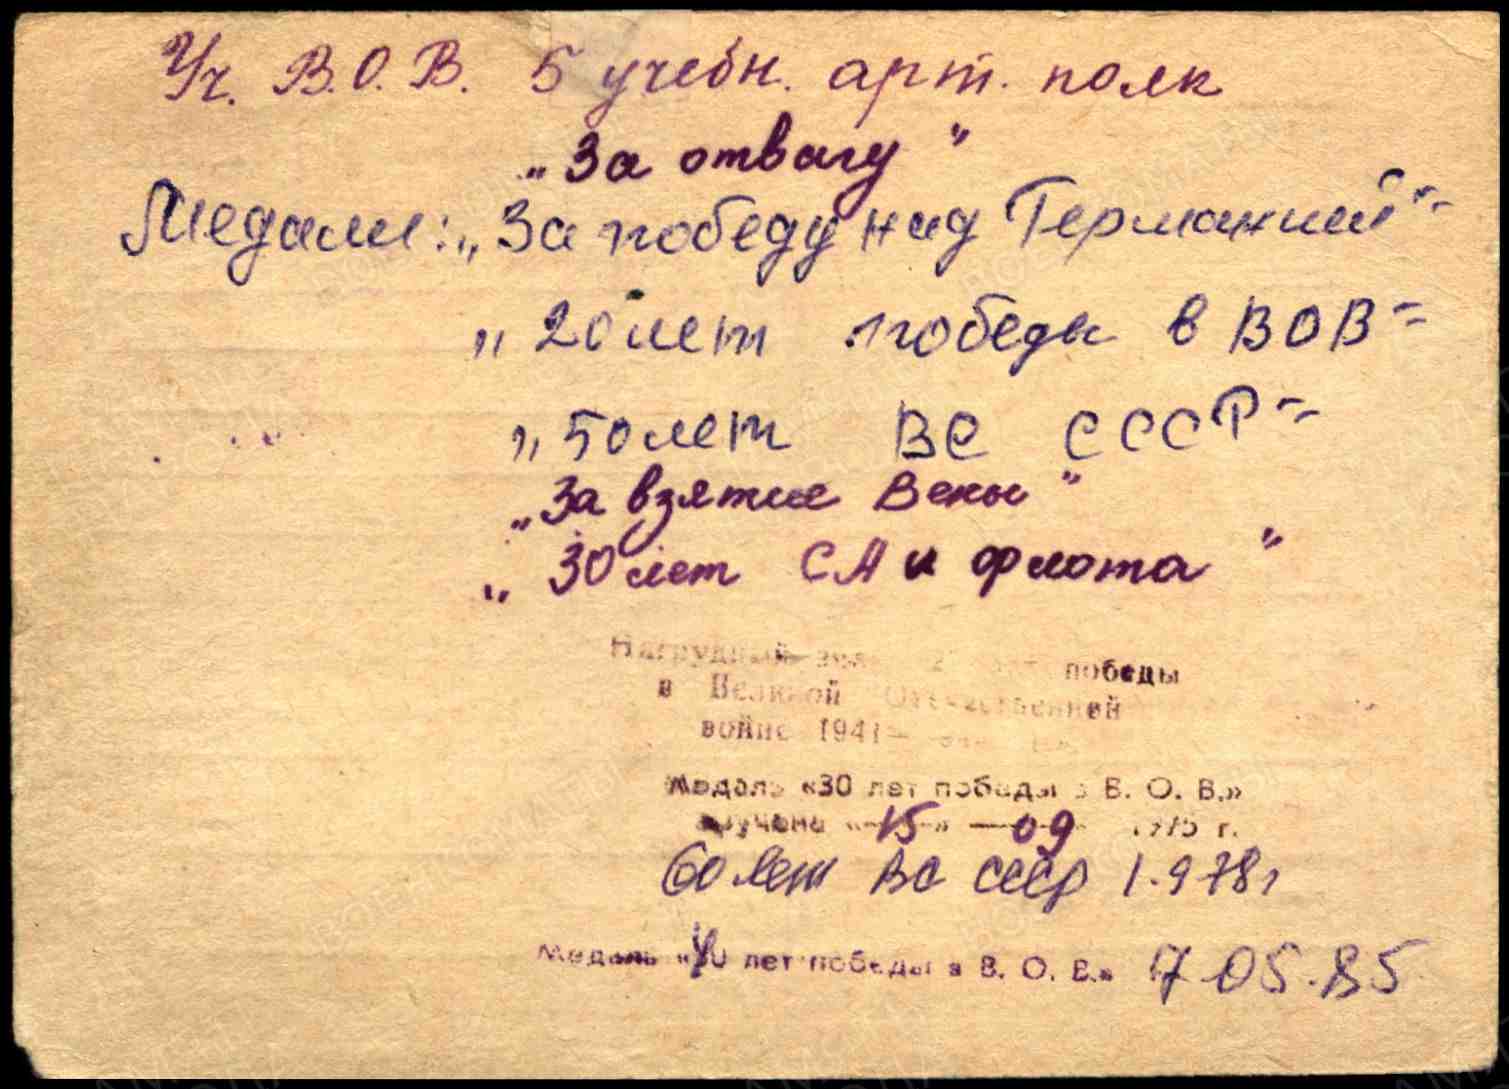 Уч. В.О.В. 5 учебн. арт. полк
„За отвагу"
Медали: „За победу над Германией"
„20 лет победы в ВОВ"
„50 лет ВС СССР"
„За взятие Вены"
„30 лет СА и флота"
Нагрудный победы
в Великой Отечественной
войне 1941–
Медаль «30 лет победы в В. О. В.»
вручена «15» 09 1975 г.
60 лет ВС СССР 1.978г
Медаль «40 лет победы в В. О. В.» 7.05.85